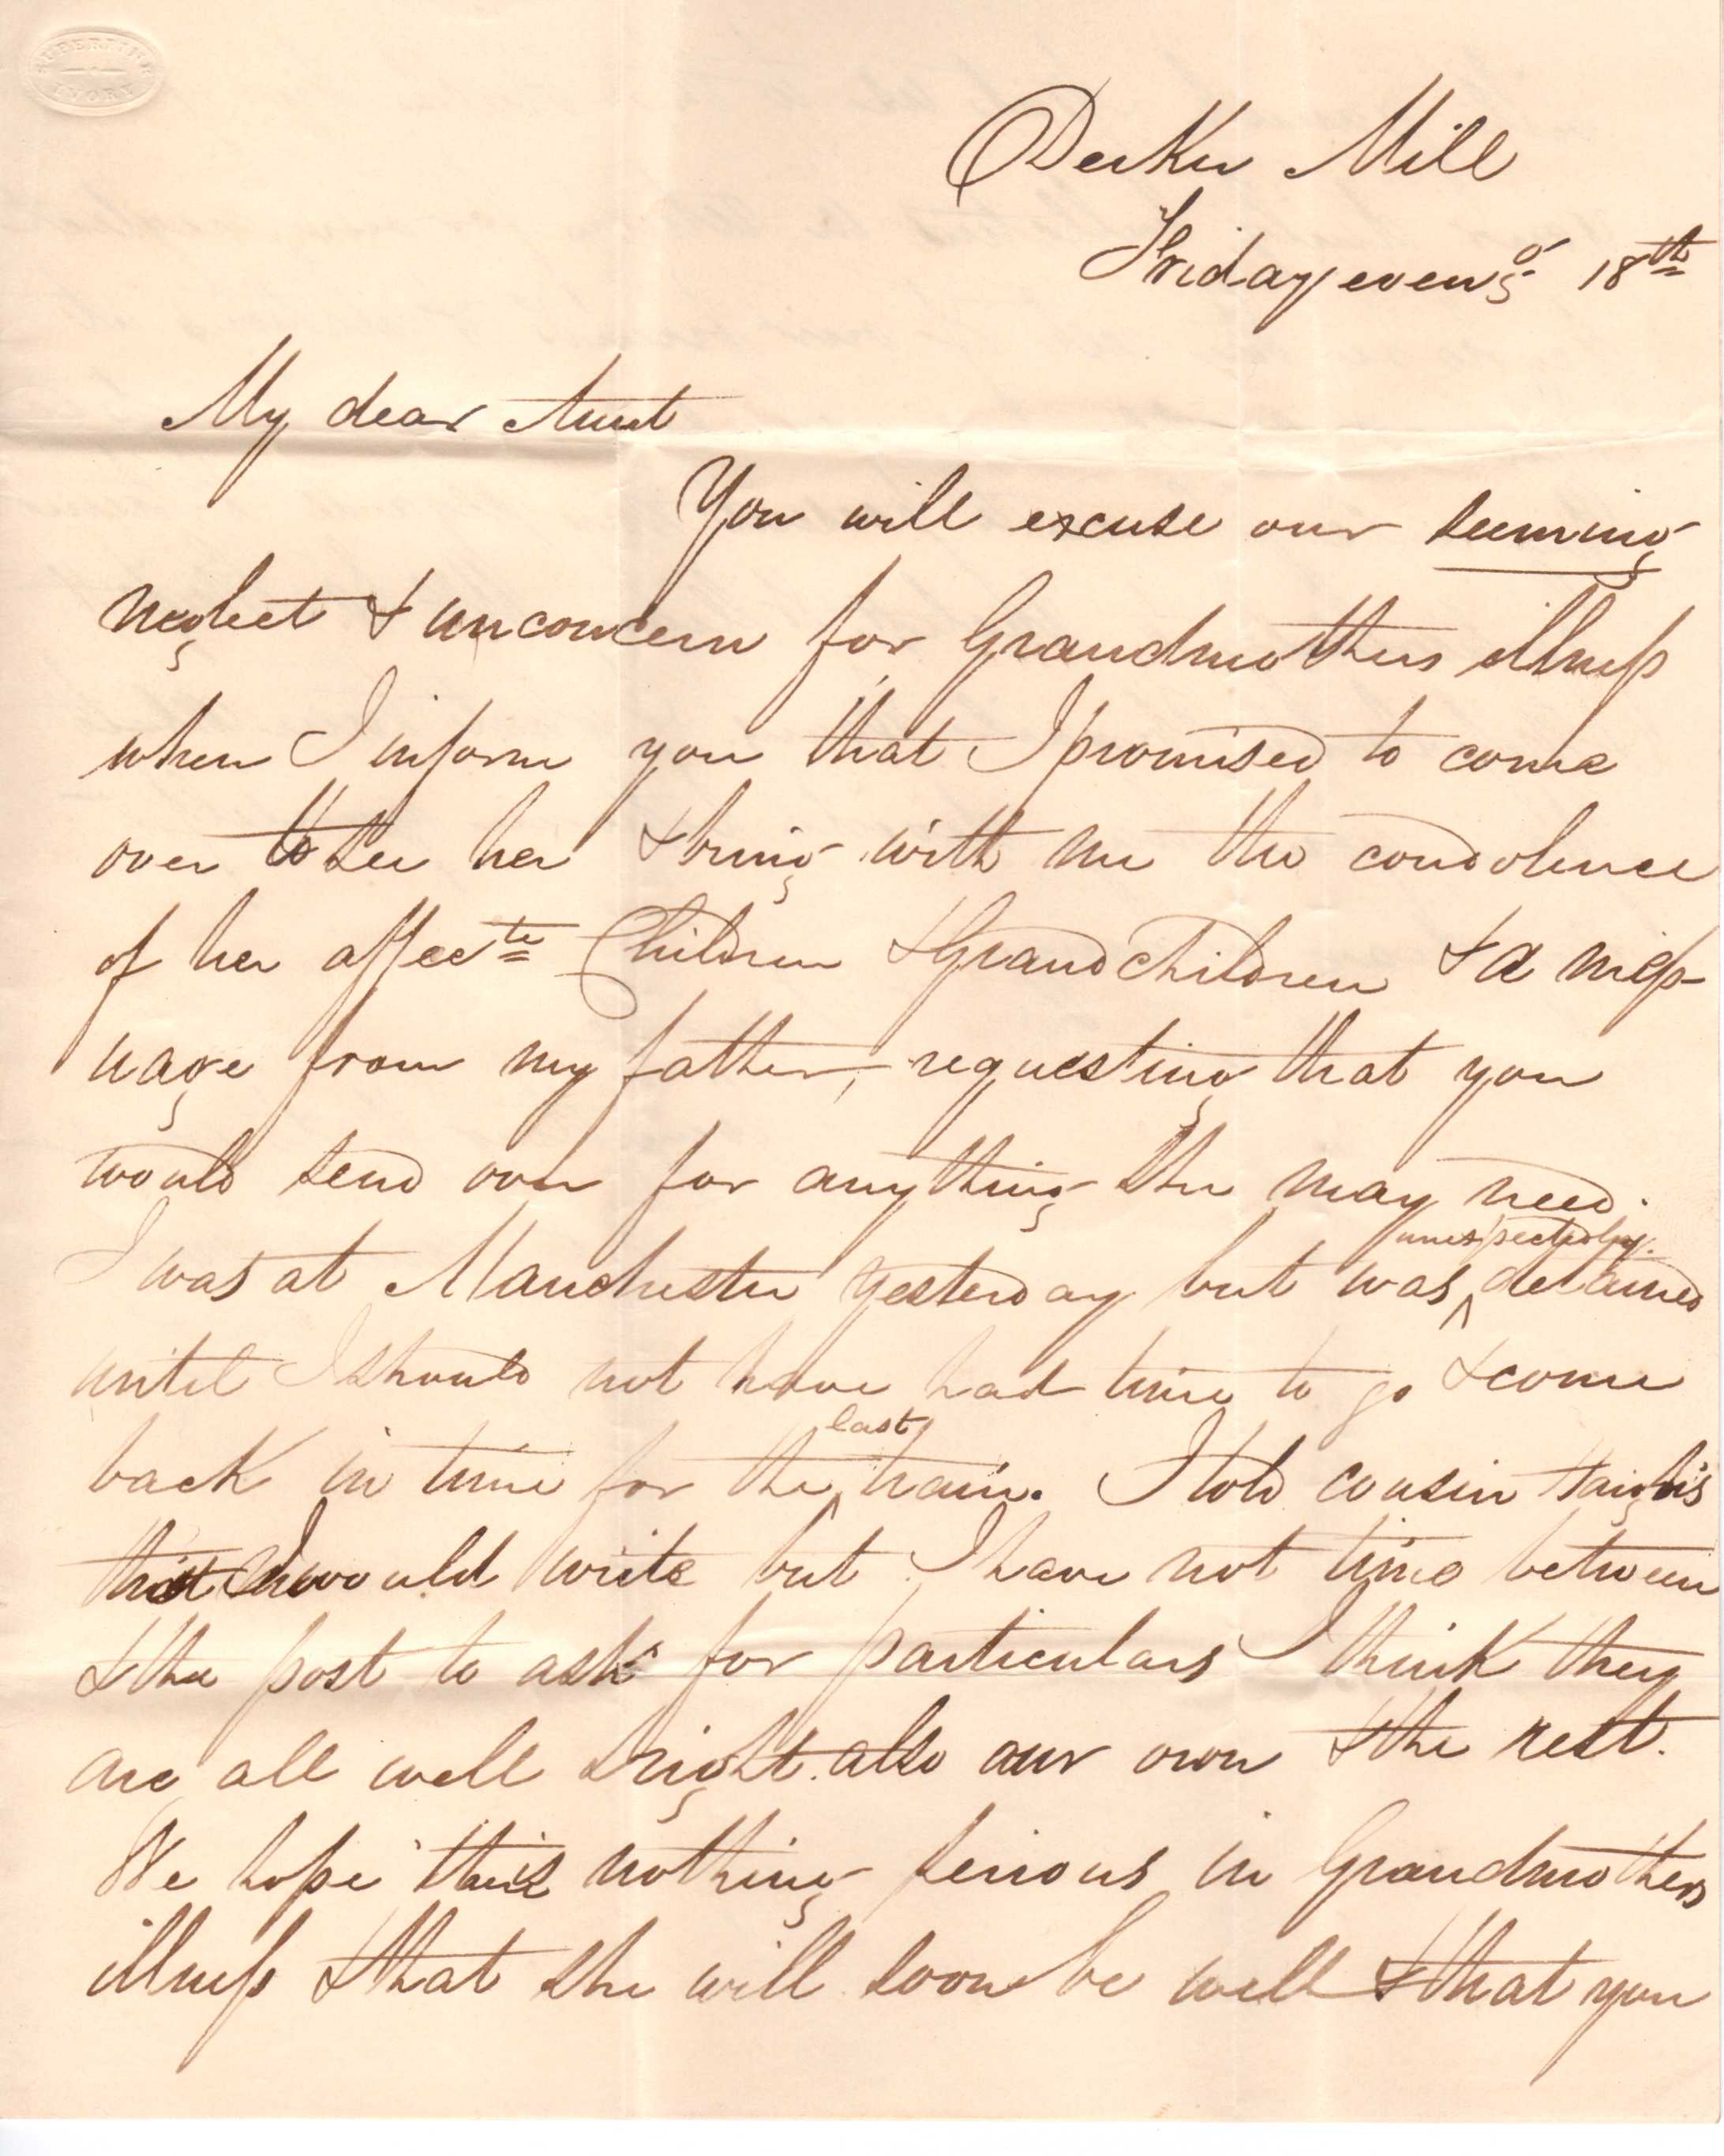 SUPERFINE
IVORY
Derker Mill
Friday eveng 18th
My dear Aunt
You will excuse our seeming
neglect & unconcern for Grandmothers illness
when I inform you that I promised to come
over to see her & bring with me the condolence
of her affecte Children & Grandchildren & a mes-
uage from my father, requesting that you
would send over for anything she may need.
I was at Manchester yesterday but was unexpectedly detained
until I should not have had time to go & come
back in time for the last train. I told cousin
that I would write but I have not time between
& the post to ask for particulars I think they
are all well & right. also our own & the rest.
We hope this nothing serious in Grandmothers
illness & that she will soon be well & that you